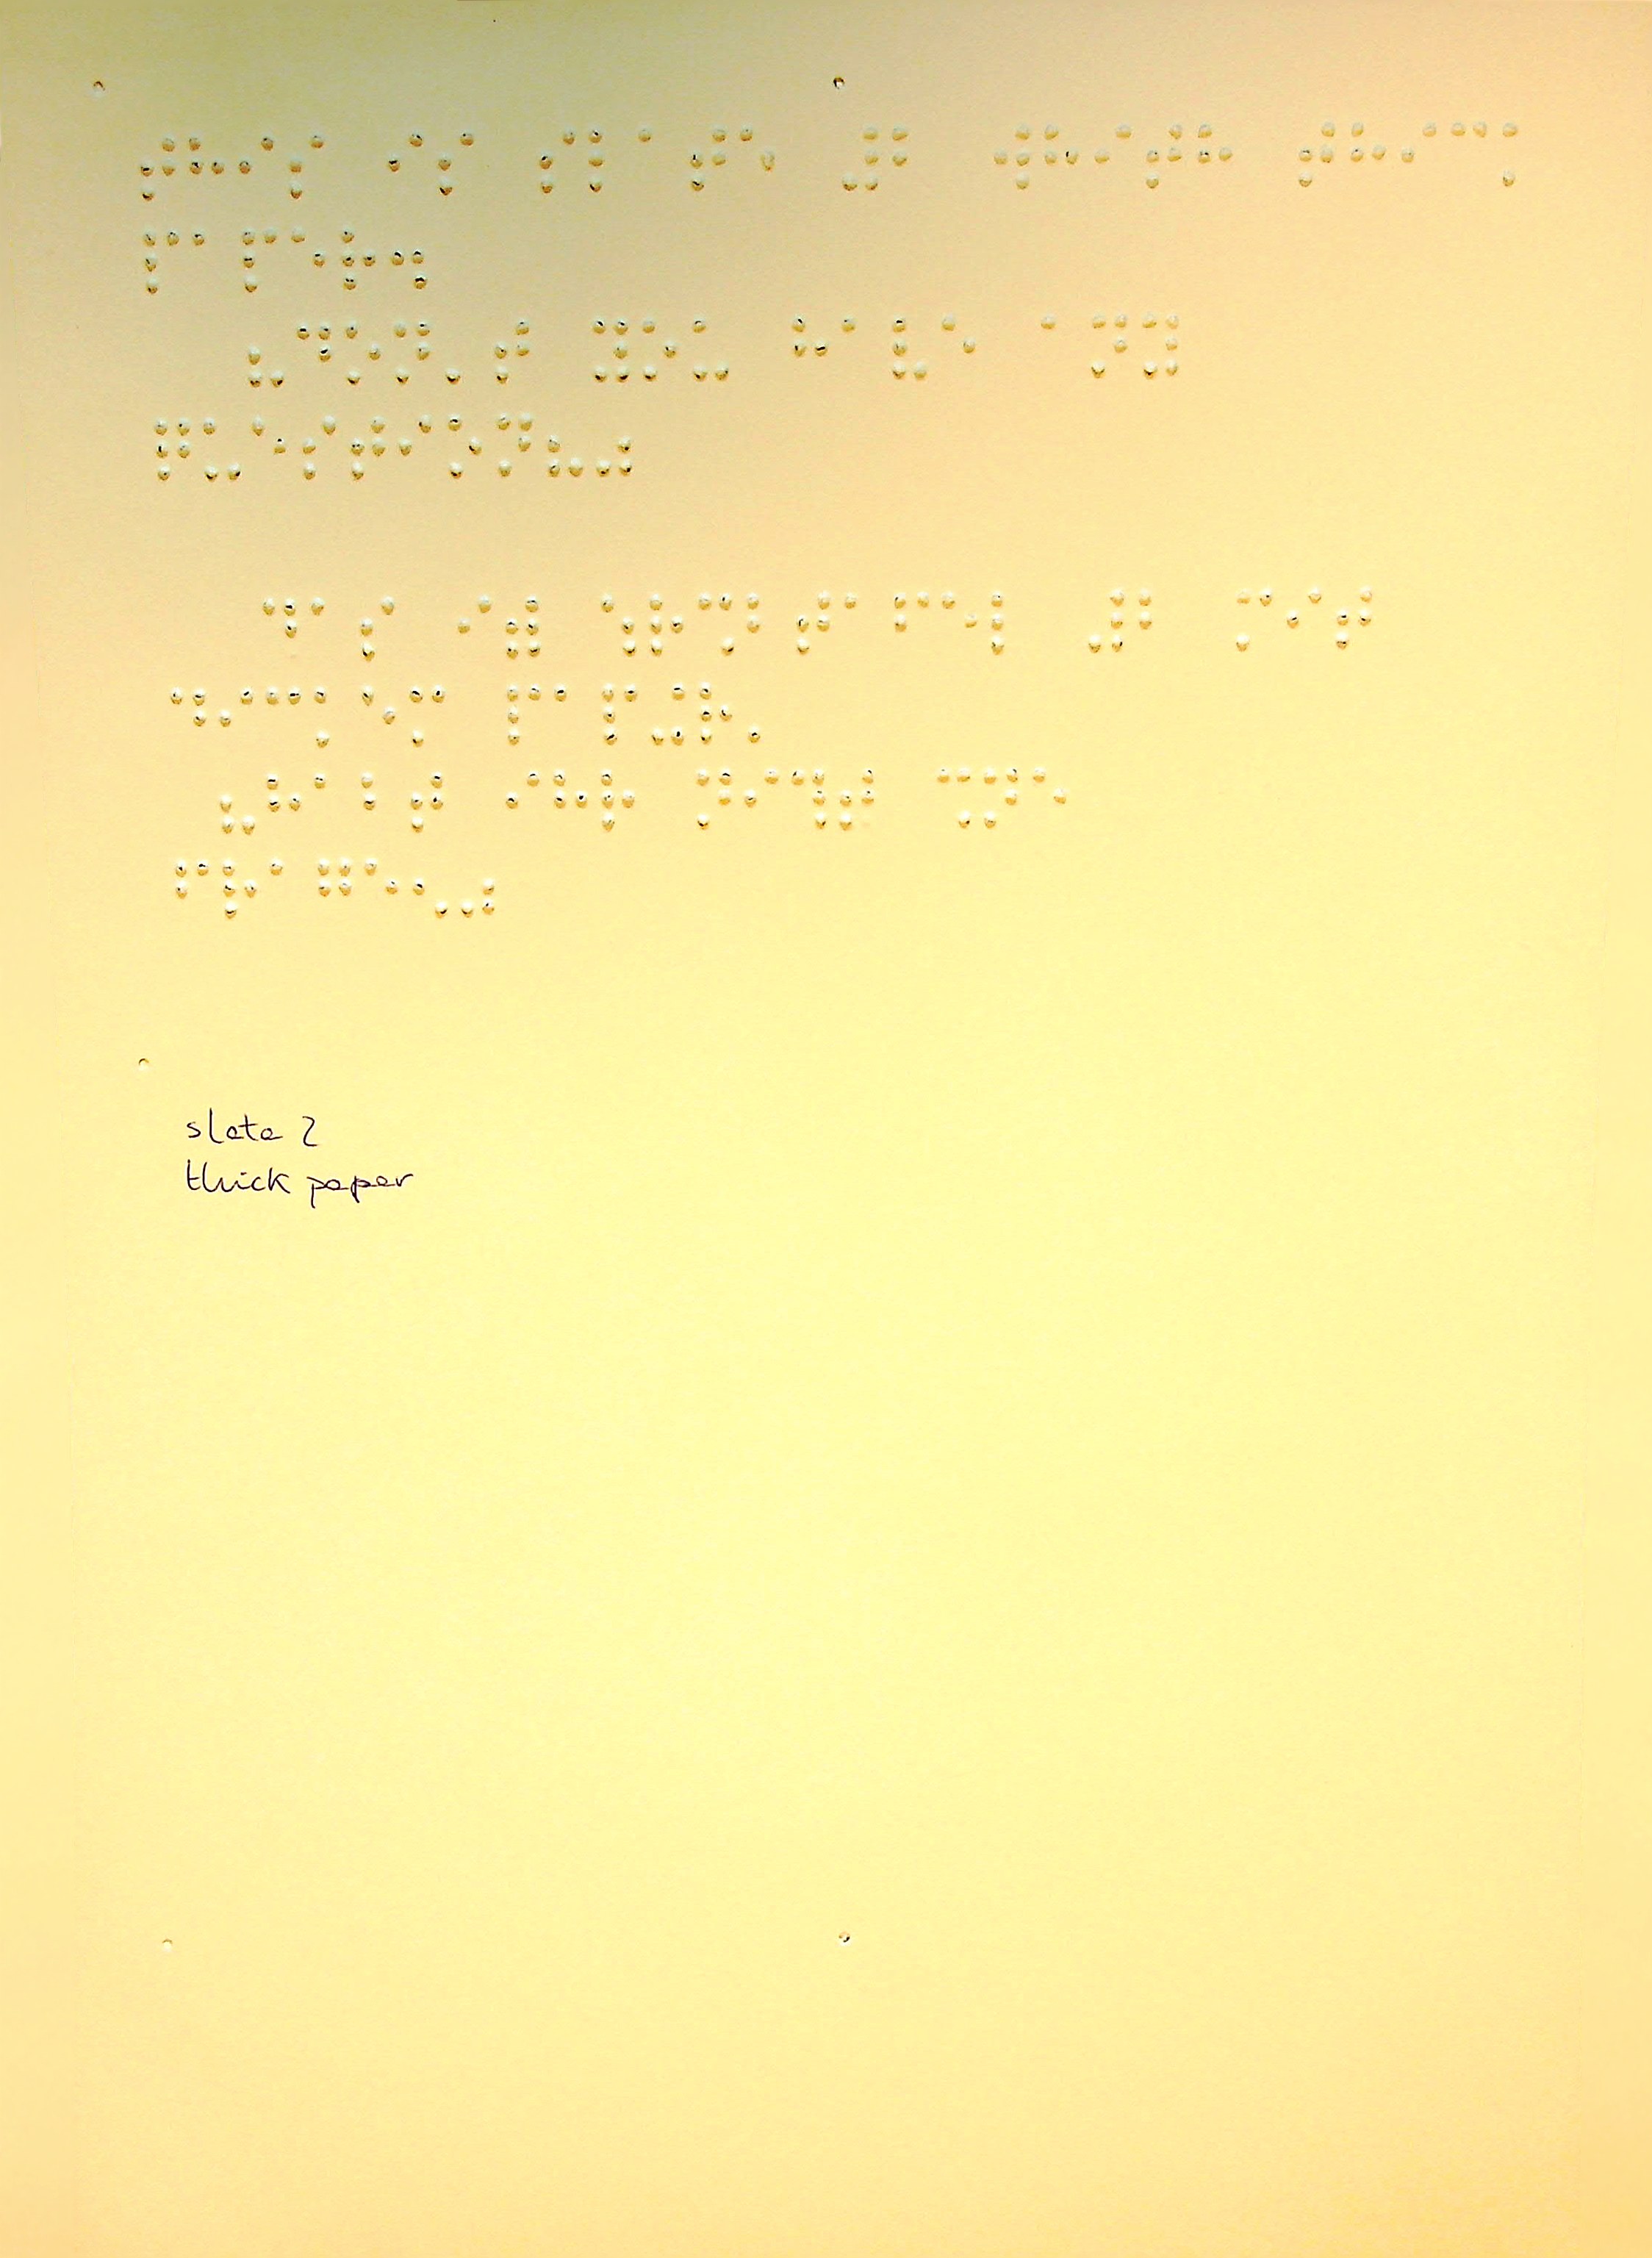 ⠞⠓⠊⠎⠀⠊⠎⠀⠎⠇⠁⠞⠑⠀⠼⠃⠀⠺⠓⠊⠞⠓⠀⠞⠓⠊⠉⠅
⠏⠁⠏⠑⠗⠲
⠦⠙⠕⠝⠄⠞⠀⠽⠕⠥⠀⠓⠁⠧⠑⠀⠁⠝⠽
⠟⠥⠑⠎⠞⠊⠕⠝⠦⠴
⠙⠁⠎⠀⠊⠾⠀⠱⠗⠩⠃⠞⠁⠋⠑⠇⠀⠼⠃⠀⠍⠊⠞
⠙⠊⠉⠅⠑⠍⠀⠏⠁⠏⠬⠗⠄
⠦⠓⠁⠃⠞⠀⠊⠓⠗⠀⠝⠊⠹⠞⠀⠩⠝⠑
⠋⠗⠁⠛⠑⠢⠴
slate 2
thick paper